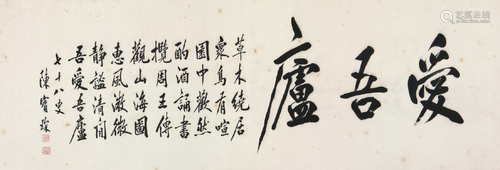 愛吾廬
草木繞居
衆鳥有喧
園中歡然
酌酒誦書
攬周王傳
觀山海圖
惠風微
靜謐清閒
吾愛吾廬
七十八叟
陳寶琛